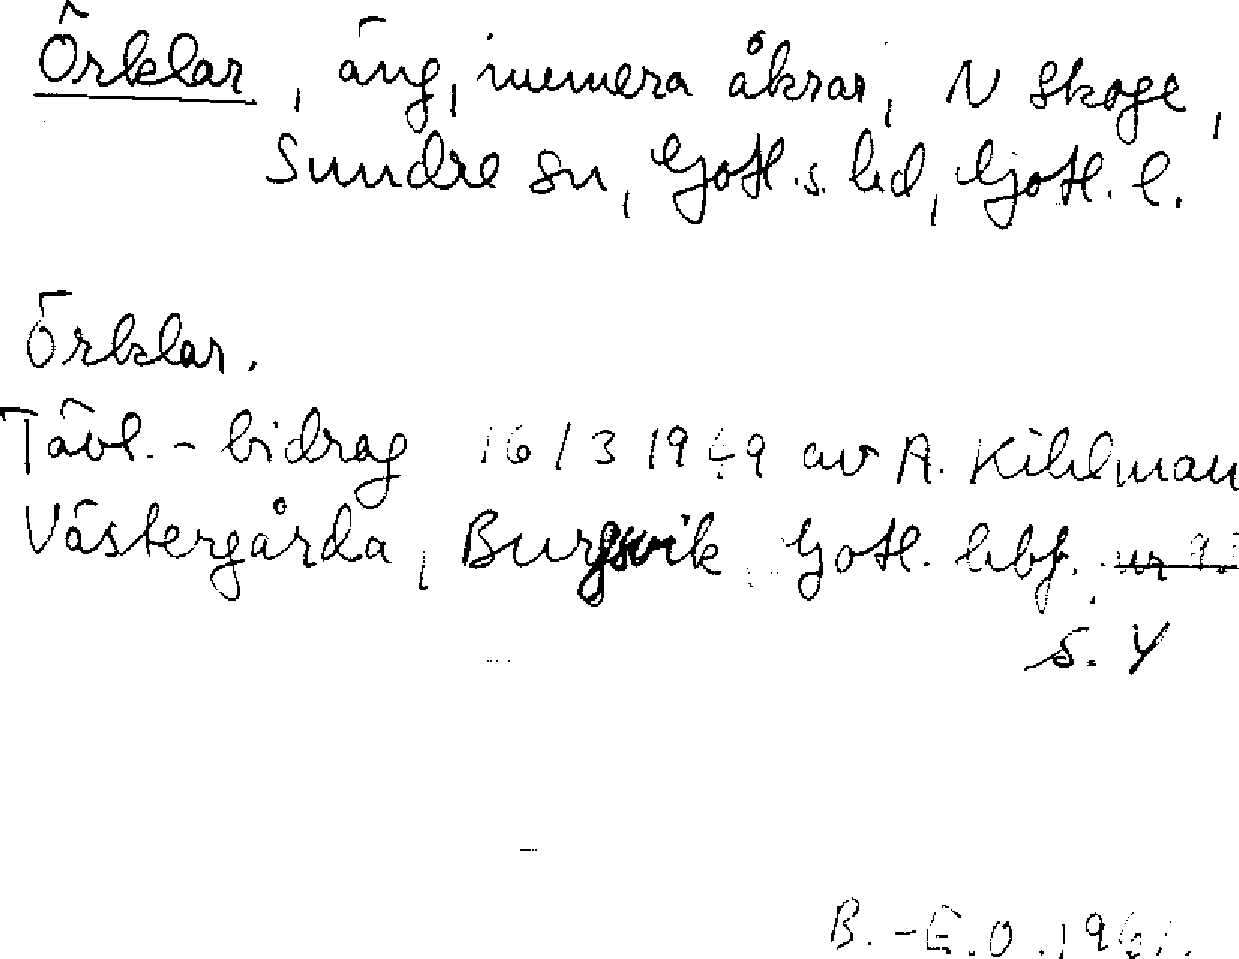 Örklar, äng, numera åkrar, N Skoge,
Sundre sn, Gotl. s. hd, Gotl. l.
Örklar.
Tävl.-bidrag 16/3 1949 av A. Kihlman
Västergårda, Burgsvik, Gotl. hbf.
s. 4
B.-E.O. 1961.